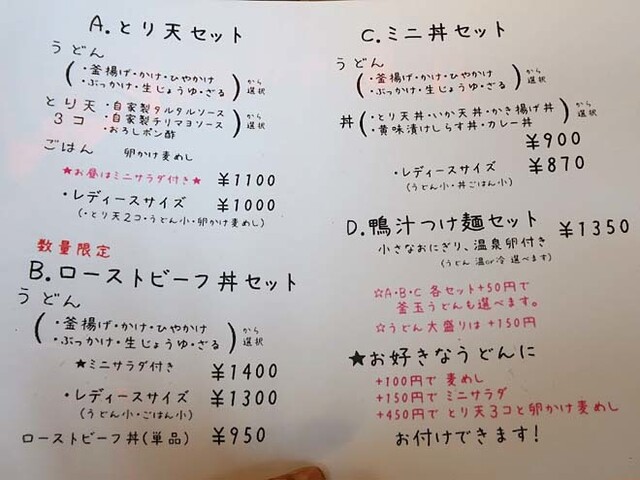 A.とり天セット
うどん
(・釜揚げ・かけ・ひやかけ
・ぶっかけ・生じょうゆ・ざる) から選択
とり天3コ
(・自家製タルタルソース
・自家製チリマヨソース
・おろしポン酢) から選択
ごはん 卵かけ麦めし
★お昼はミニサラダ付き★ ¥1100
・レディースサイズ ¥1000
(・とり天2コ・うどん小・卵かけ麦めし)
数量限定
B.ローストビーフ丼セット
うどん
(・釜揚げ・かけ・ひやかけ
・ぶっかけ・生じょうゆ・ざる) から選択
★ミニサラダ付き ¥1400
・レディースサイズ ¥1300
(うどん小・ごはん小)
ローストビーフ丼(単品) ¥950
C.ミニ丼セット
うどん
(・釜揚げ・かけ・ひやかけ
・ぶっかけ・生じょうゆ・ざる) から選択
丼
(・とり天丼・いか天丼・かき揚げ丼
・黄味漬けしらす丼・カレー丼) から選択
¥900
・レディースサイズ ¥870
(うどん小・丼ごはん小)
D.鴨汁つけ麺セット ¥1350
小さなおにぎり、温泉卵付き
(うどん 温or冷 選べます)
☆A・B・C 各セット+50円で
釜玉うどんも選べます。
☆うどん大盛りは +150円
★お好きなうどんに
+100円で 麦めし
+150円で ミニサラダ
+450円で とり天3コと卵かけ麦めし
お付けできます!